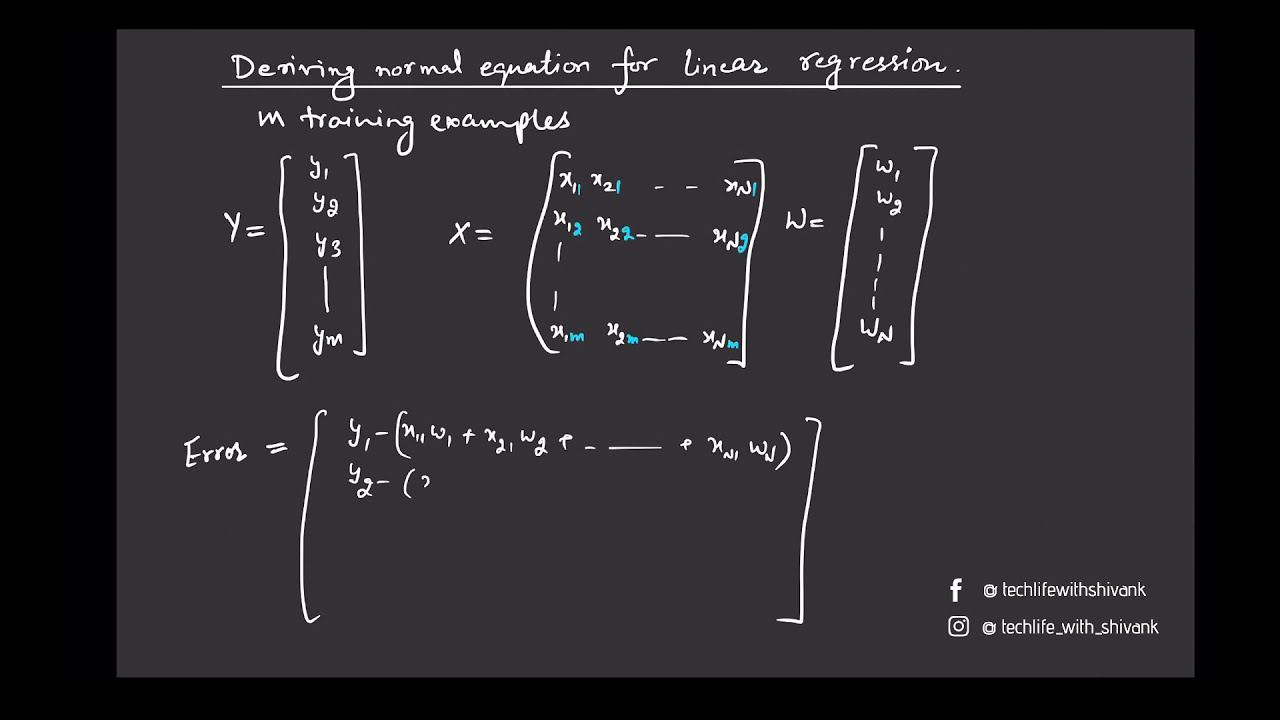 Deriving normal equation for linear regression.
m training examples
Y = [ y₁ y₂ y₃ | | yₘ ]
X = [ x₁₁ x₂₁ - - xN₁
x₁₂ x₂₂ - — xN₂
|
|
x₁ₘ x₂ₘ — — xNₘ ]
W = [ w₁ w₂ | | | | wN ]
Error = [ y₁ - (x₁₁ w₁ + x₂₁ w₂ + - — + xN₁ wN)
y₂ - (
@ techlifewithshivank
@ techlife_with_shivank